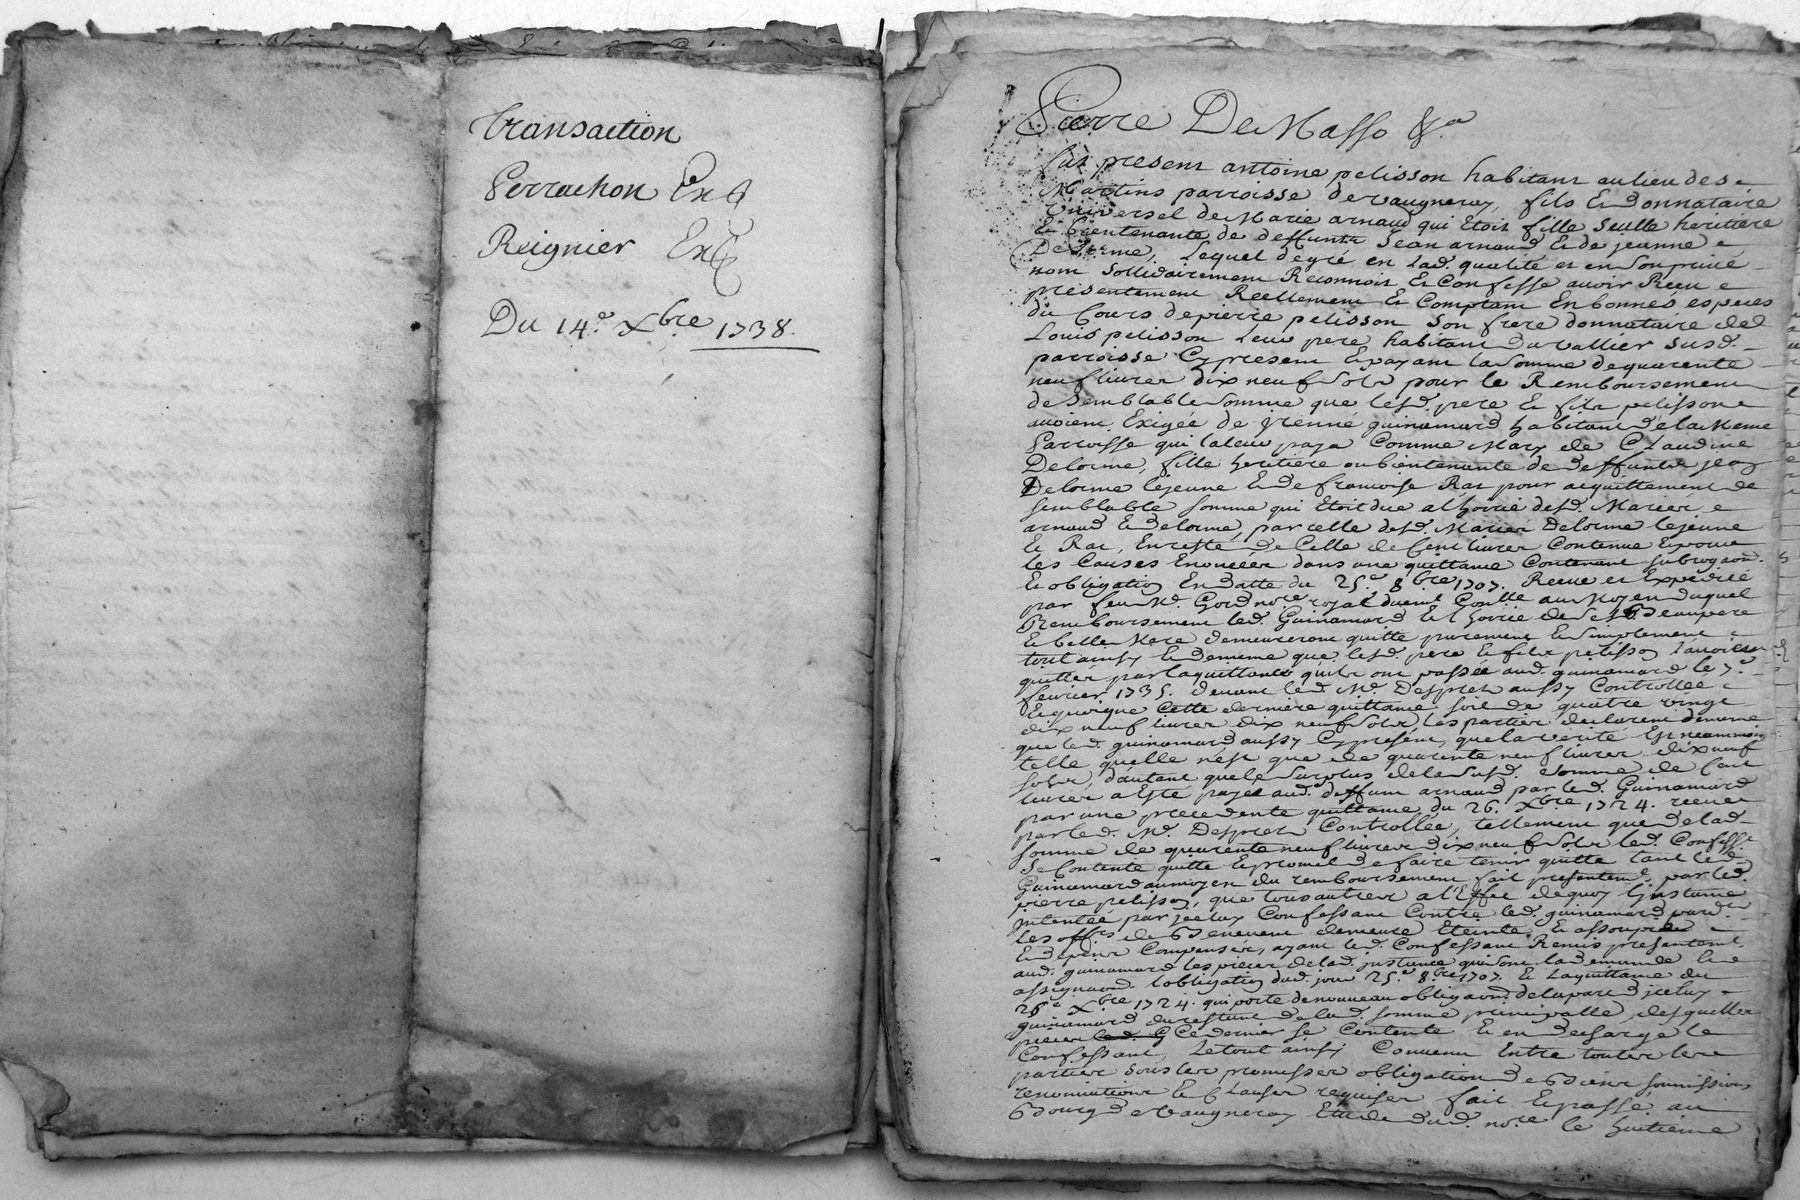 Transaction
Perrachon
Reignier
Du 14.e Xbre 1738.
Pierre DeMasso &.a
fut present antoine pelisson habitant au lieu des
Martins parroisse de vaugneray, fils & donnataire
universel de Marie arnaud qui Etoit fille seulle heritiere
& bientenante de deffunts Jean arnaud & de jeanne
Delorme, Lequel degré en lad. qualité et en son privé
nom sollidairement Reconnoit & Confesse avoir Receu
présentement Réellement & Comptant En bonnes especes
du Cours de pierre pelisson son frere donnataire de
Louis pelisson Leur pere habitant du vallier susd.
parroisse Cy present & payant la somme de quarente
neuf livres dix neuf sols pour le Remboursement
de semblable somme que lesd. pere & fils pelisson
avoient Exigée de guinamard habitant de la Meme
Parroisse qui la leur paya Comme Mary de Claudine
Delorme, fille heritiere ou bientenante de deffunts jean
Delorme lejeune & de francoise Rat pour acquittement de
semblable somme qui Etoit due a l'horrie desd. Mariés
arnaud & delorme, par celle desd. Mariés Delorme lejeune
& Rat, En reste de Celle de Cent livres Contenue & pour
les Causes Enoncées dans une quittance Contenant subrogaon.
& obligation En datte du 25.e 8bre 1707. Receue et Expediée
par feu Me. Gord nore. royal duemt. Conllé au Moyen duquel
Remboursement led. Guinamard & l'horrie de sesd. Beaupere
& belle Mere demeureront quitte purement & simplement
tout ainsy & de meme que lesd. pere & fils pelisson l'avoient
quitté par la quittance qu'ils ont passée aud. guinamard le 7.e
fevrier 1735. devant led. Me. Desprez aussy Controllée
& quoique Cette derniere quittance soit de quatre vingt
dix neuf livres dix neuf sols, les parties declarent de meme
que led. guinamard aussy Cy présent, que la verité Est neanmoins
telle quelle n'est que de quarente neuf livres dix neuf
sols, d'autant que le surplus de la susd. somme de Cent
livres a Esté payée aud. deffunt arnaud par led. Guinamard
par une precedente quittance du 26. Xbre 1724. receue
par led. Me. Desprez Controllée, tellement que de lad.
somme de quarente neuf livres dix neuf sols led. Confesst.
se Contente quitte & promet de faire tenir quitte tant led.
Guinamard au moyen du remboursement fait presentemt. par led.
pierre pelisson, que tous autres a l'Effet de quoy l'jnstance
jntentée par jceluy Confessant Contre led. guinamard pard.
les offrs de demeure Eteinte & assoupie
& depens Compensés, ayant led. Confessant Remis presentemt.
aud. guinamard les pieces de lad. jnstance qui sont la demande
assignaon. l'obligation dud. jour 25.e 8bre 1707. & la quittance du
26.e Xbre 1724. qui porte de nouveau obligaon. de la part d'jceluy
guinamard du restant de lad. somme principalle, desquelles
pieces Ce dernier se Contente & en decharge le
Confessant, Le tout ainsy Convenu Entre toutes les
parties sous les promesses obligation de Biens, soumissions
renonciations & Clauses requises fait & passé au
Bourg de vaugneray Etude dud. nore. le huitieme